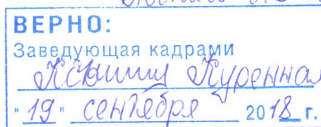 ВЕРНО:
Заведующая кадрами
Куренная
"19" сентября 2018 г.